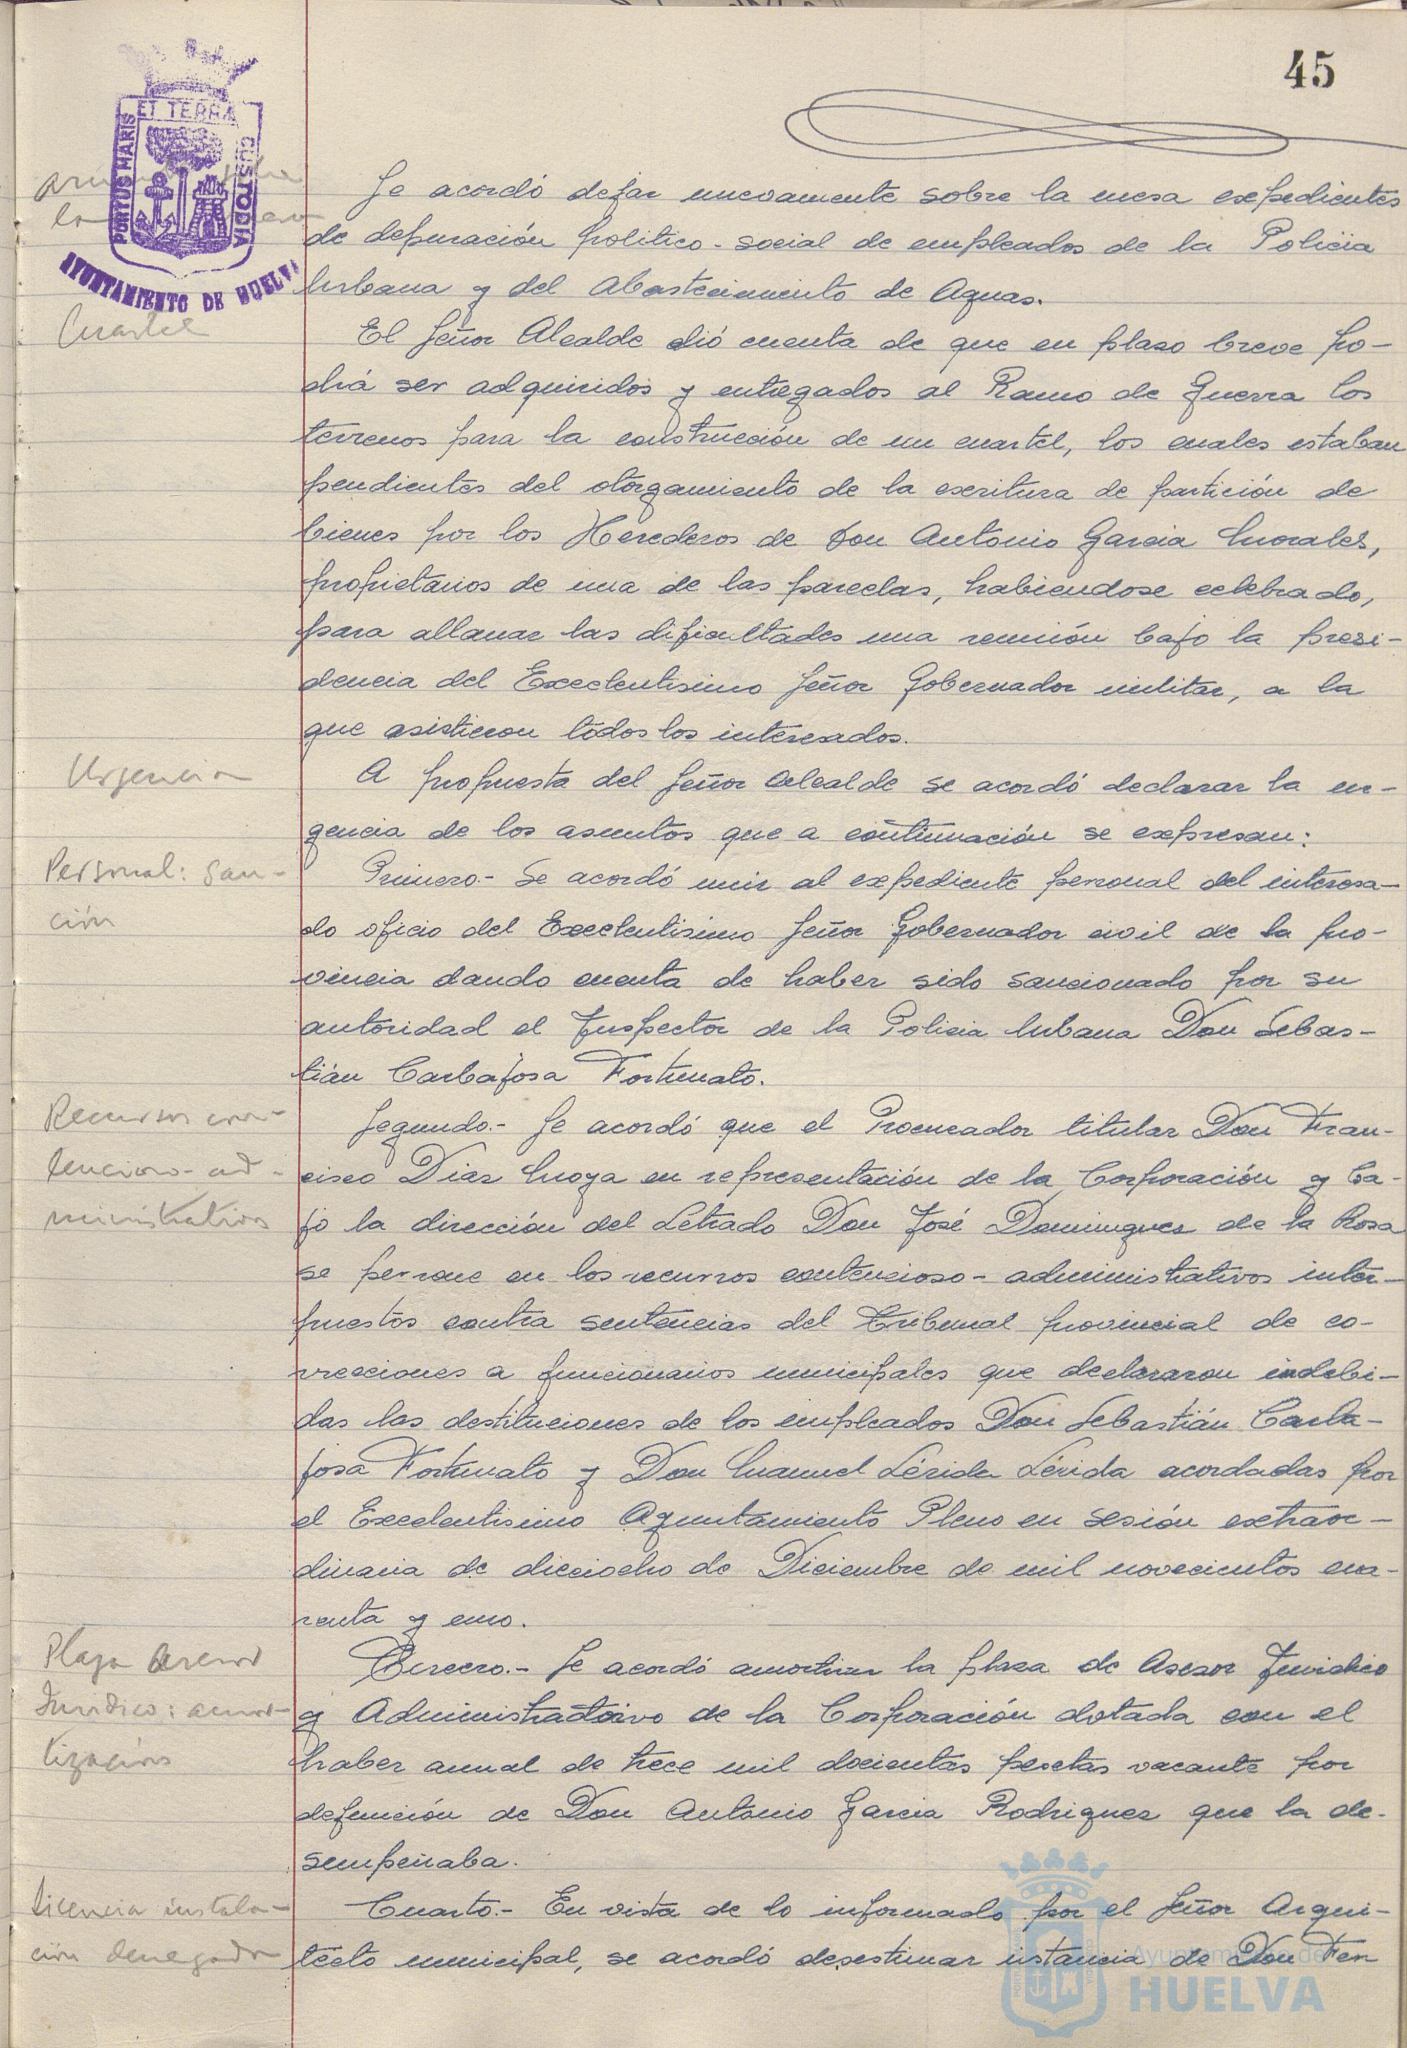 45
PORTUS MARIS
ET TERRA
CUSTODIA
AYUNTAMIENTO DE HUELVA
Se acordó dejar nuevamente sobre la mesa expedientes
de depuración politico-social de empleados de la Policia
Urbana y del Abastecimiento de Aguas.
Cuartel
El Señor Alcalde dió cuenta de que en plazo breve po-
drá ser adquiridos y entregados al Ramo de Guerra los
terrenos para la construcción de un cuartel, los cuales estaban
pendientes del otorgamiento de la escritura de partición de
bienes por los Herederos de Don Antonio Garcia Morales,
propietarios de una de las parcelas, habiendose celebrado,
para allanar las dificultades una reunión bajo la presi-
dencia del Excelentisimo Señor Gobernador militar, a la
que asistieron todos los interesados.
Urgencia
A propuesta del Señor Alcalde se acordó declarar la ur-
gencia de los asuntos que a continuación se expresan:
Personal: san-
ción
Primero.- Se acordó unir al expediente personal del interesa-
do oficio del Excelentisimo Señor Gobernador civil de la pro-
vincia dando cuenta de haber sido sancionado por su
autoridad el Inspector de la Policia Urbana Don Sebas-
tián Carbajosa Fortunato.
Recursos con-
tencioso-ad-
ministrativos
Segundo.- Se acordó que el Procurador titular Don Fran-
cisco Diaz Moya en representación de la Corporación y ba-
jo la dirección del Letrado Don José Dominguez de la Rosa
se persone en los recursos contencioso-administrativos inter-
puestos contra sentencias del Tribunal provincial de co-
rrecciones a funcionarios municipales que declararon indebi-
das las destituciones de los empleados Don Sebastián Carba-
josa Fortunato y Don Manuel Lérida Lérida acordadas por
el Excelentisimo Ayuntamiento Pleno en sesión extraor-
dinaria de dieciocho de Diciembre de mil novecientos cua-
renta y uno.
Plaza Asesor
Juridico: amor-
tización
Tercero.- Se acordó amortizar la plaza de Asesor Juridico
y Administrativo de la Corporación dotada con el
haber anual de trece mil docientas pesetas vacante por
defunción de Don Antonio Garcia Rodriguez que la de-
sempeñaba.
Licencia instala-
ción denegada
Cuarto.- En vista de lo informado por el Señor Arqui-
tecto municipal, se acordó desestimar instancia de Don Fer
Ayuntamiento de
HUELVA